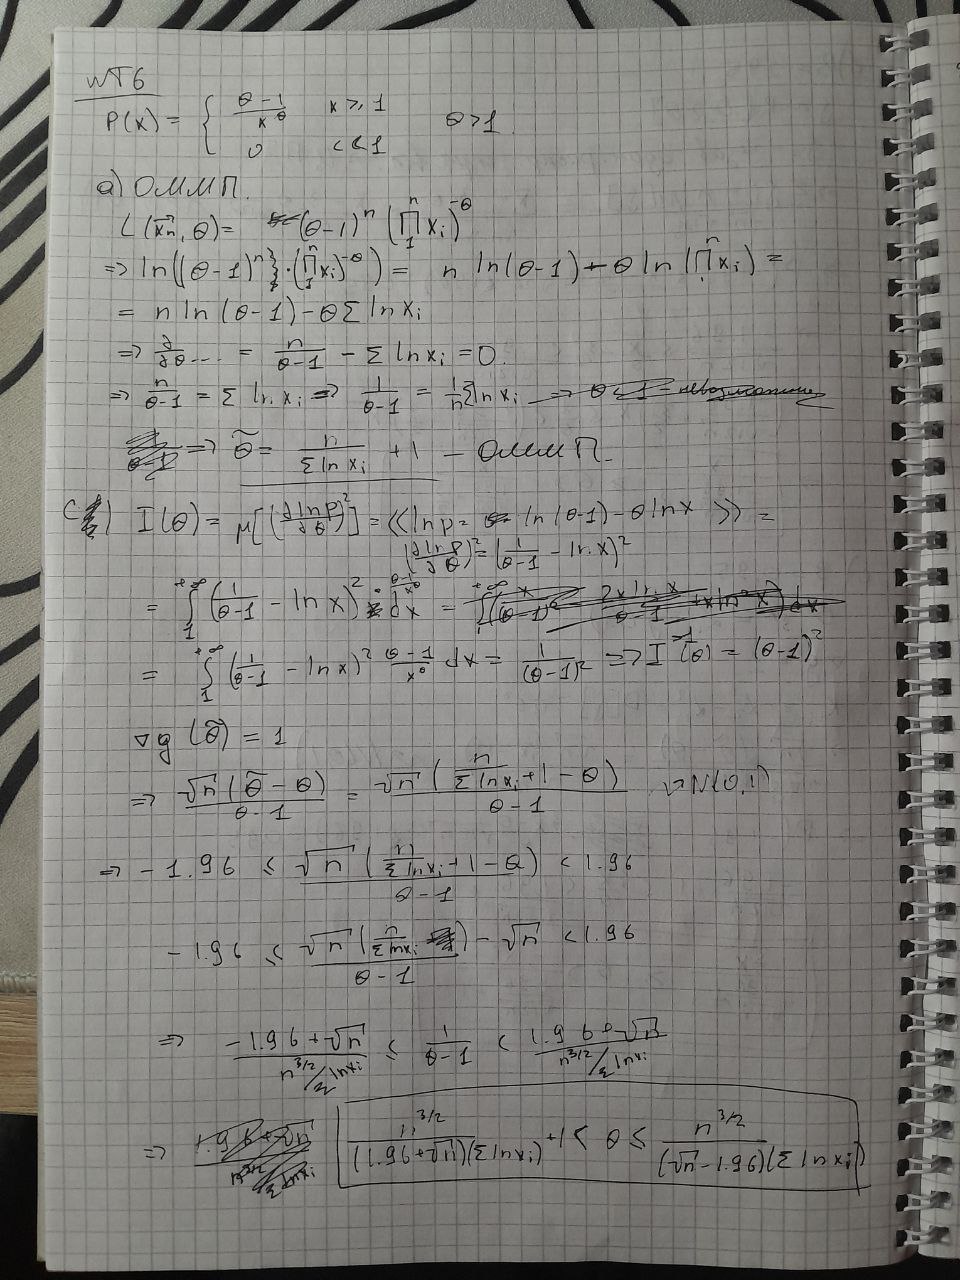 №T6
P(x) = { (θ-1)/x^θ   x ≥ 1   θ > 1
0   < < 1
a) ОММП.
L(x⃗n, θ) = (θ-1)^n (∏_1^n xi)^-θ
=> ln((θ-1)^n · (∏_1^n xi)^-θ) = n ln(θ-1) - θ ln(∏^n xi) =
= n ln(θ-1) - θ Σ ln xi
=> ∂/∂θ ... = n/(θ-1) - Σ ln xi = 0.
=> n/(θ-1) = Σ ln xi => 1/(θ-1) = 1/n Σ ln xi
=> θ̃ = n/(Σ ln xi) + 1 - ОММП.
c) I(θ) = μ[(∂ ln p/∂θ)²] = << ln p = ln(θ-1) - θ ln x >> =
(∂ ln p/∂θ)² = (1/(θ-1) - ln x)²
= ∫_1^+∞ (1/(θ-1) - ln x)² · (θ-1)/x^θ dx =
= ∫_1^+∞ (1/(θ-1) - ln x)² (θ-1)/x^θ dx = 1/(θ-1)² => I^-1(θ) = (θ-1)²
∇g(θ̃) = 1
=> √n(θ̃ - θ)/(θ-1) = √n(n/(Σ ln xi) + 1 - θ)/(θ-1) ~ N(0,1)
=> -1.96 ≤ √n(n/(Σ ln xi) + 1 - θ)/(θ-1) < 1.96
-1.96 ≤ √n(n/(Σ ln xi))/(θ-1) - √n < 1.96
=> (-1.96 + √n)/(n^3/2/Σ ln xi) ≤ 1/(θ-1) < (1.96 + √n)/(n^3/2/Σ ln xi)
=> n^3/2/((1.96 + √n)(Σ ln xi)) + 1 < θ ≤ n^3/2/((√n - 1.96)(Σ ln xi))